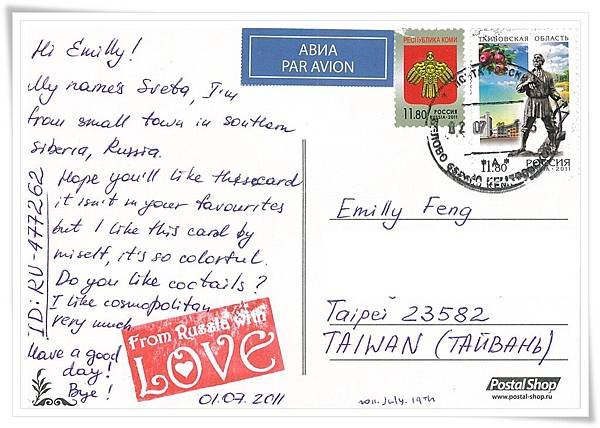 Hi Emilly!
My name's Sveta, I'm
from small town in southern
Siberia, Russia.
Hope you'll like this card
it isn't in your favourites
but I like this card by
miself, it's so colorful.
Do you like coctails?
I like cosmopolitan
very much.
Have a good
day!
Bye!
ID: RU-477262
01.07.2011
From Russia with
LOVE
АВИА
PAR AVION
РЕСПУБЛИКА КОМИ
11.80 РОССИЯ
RUSSIA·2011
ТАМБОВСКАЯ ОБЛАСТЬ
РОССИЯ
11.80
2011
02 07
Emilly Feng
Taipei 23582
TAIWAN (ТАЙВАНЬ)
2011. July. 19th
PostalShop
www.postal-shop.ru